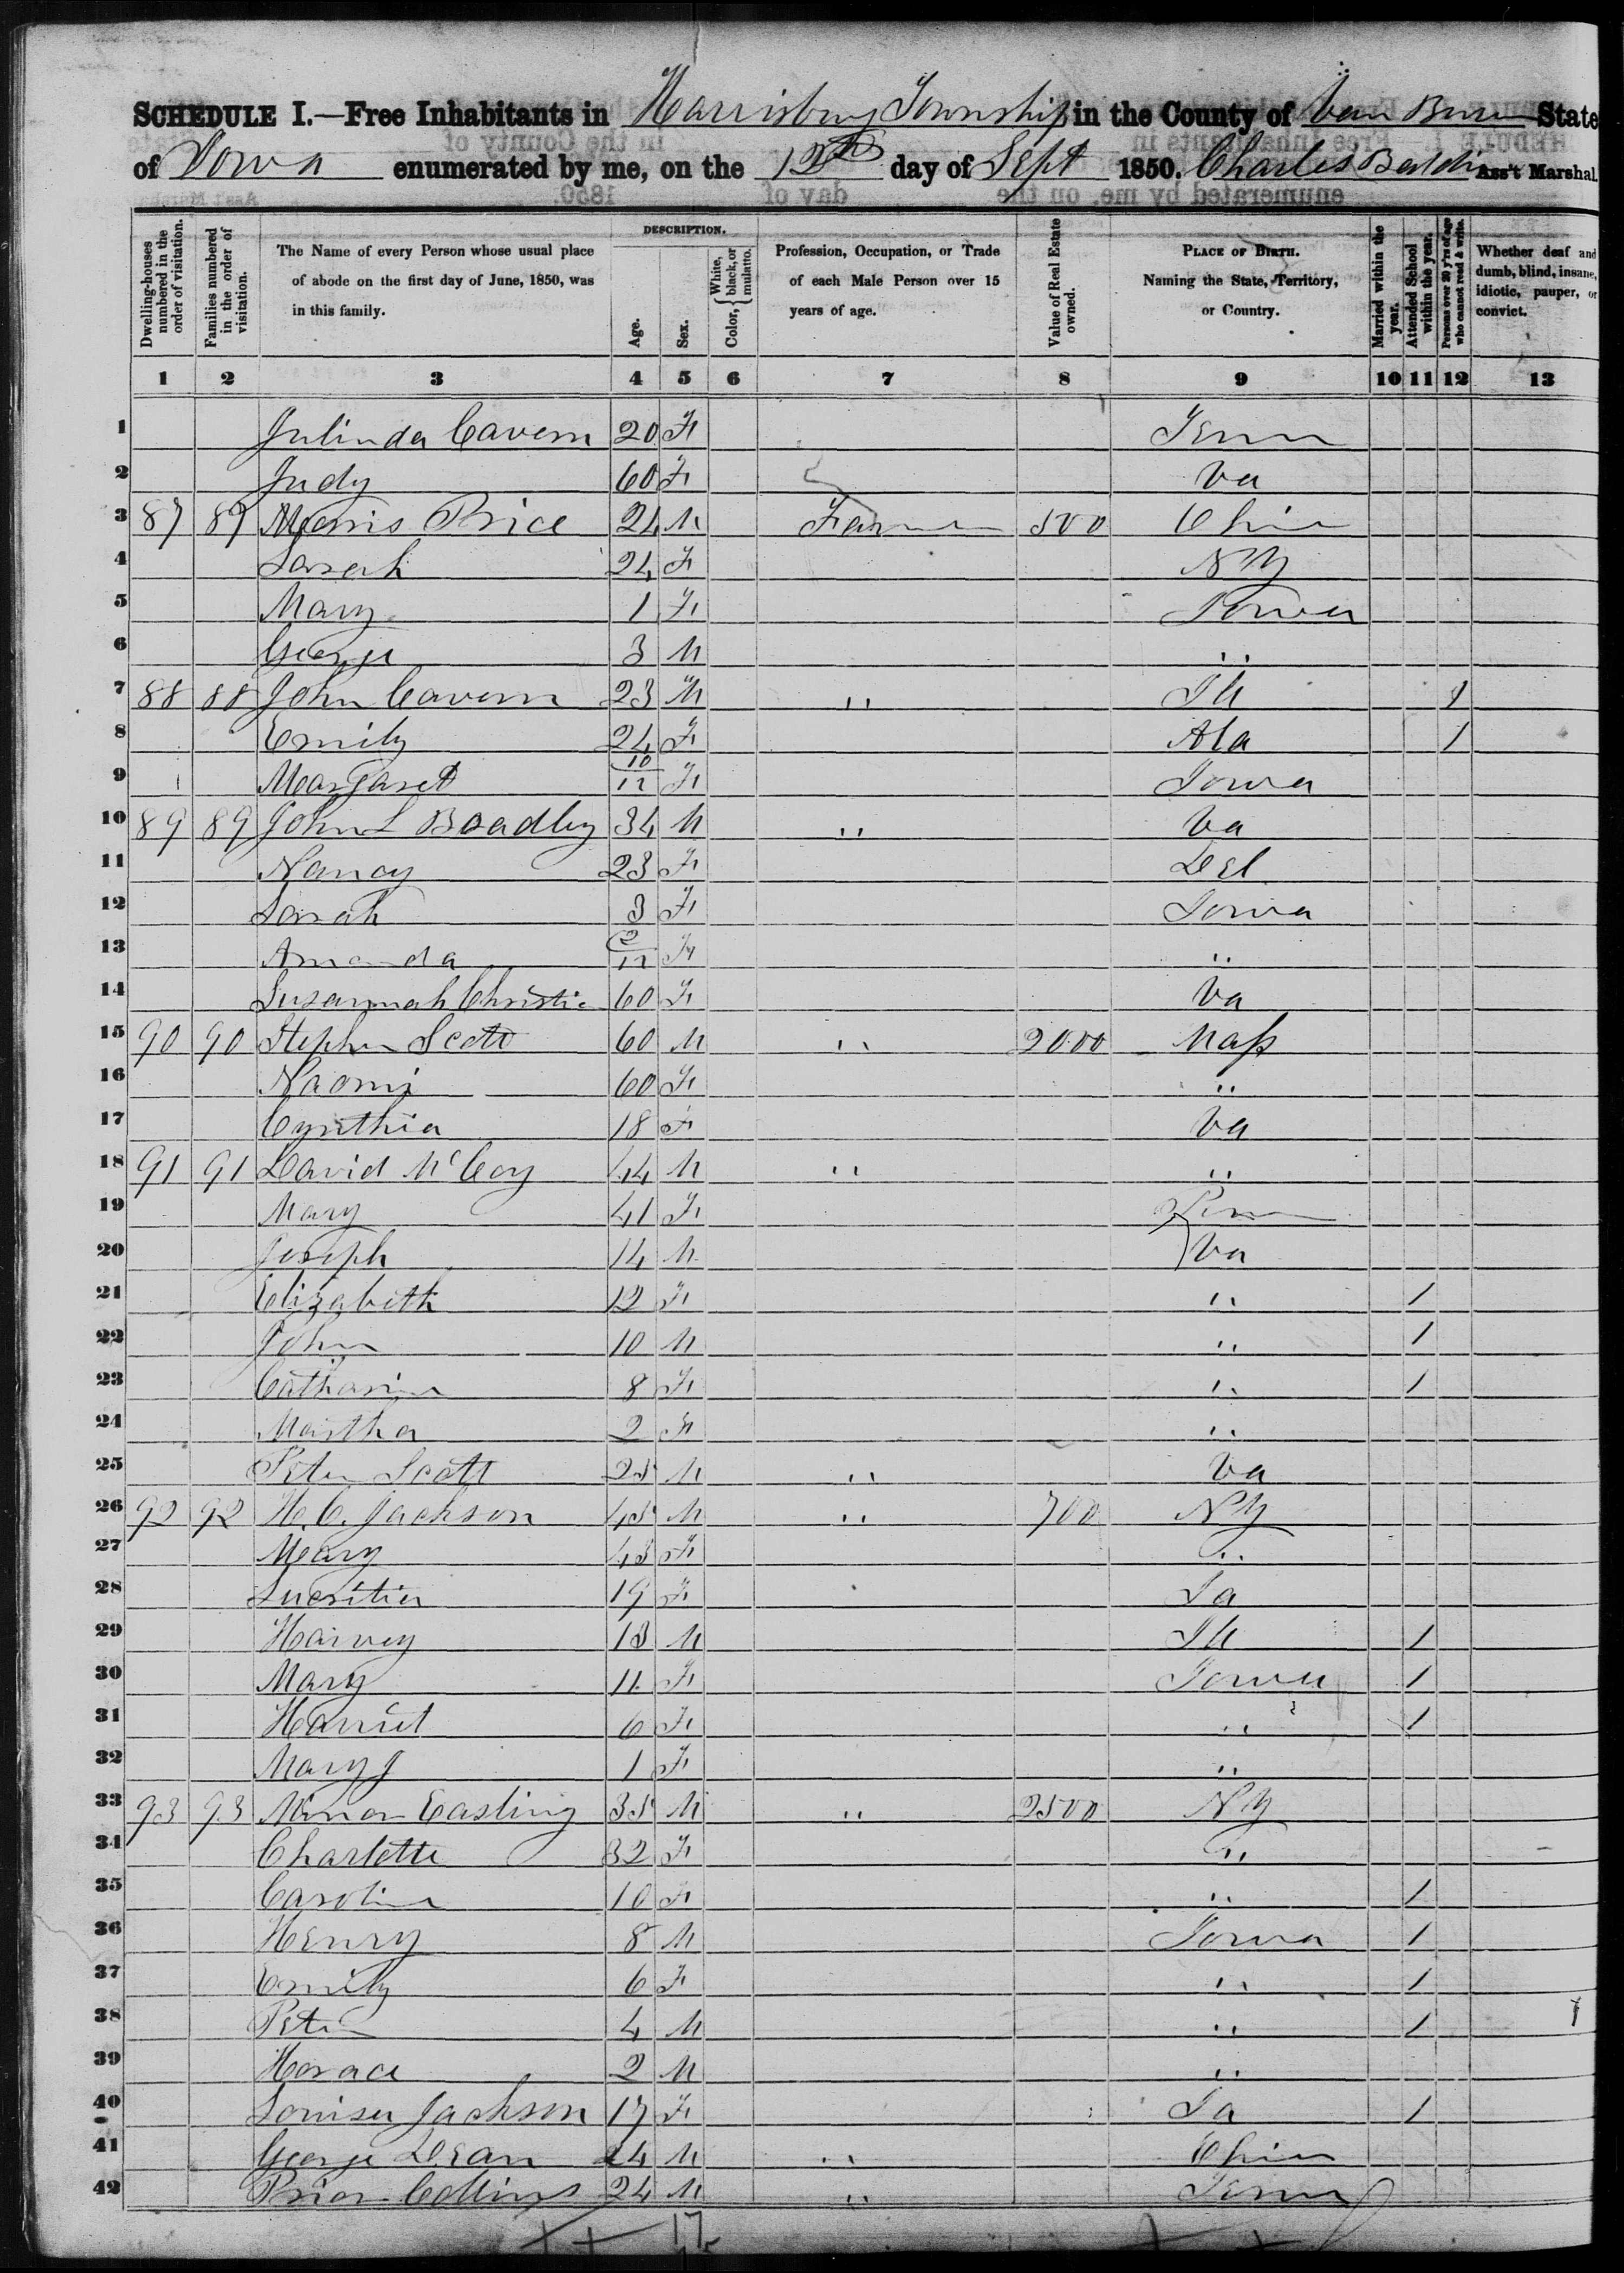 SCHEDULE I.—Free Inhabitants in Harrisburg Township in the County of Van Buren State
of Iowa enumerated by me, on the 12th day of Sept 1850. Charles Baldwin Ass't Marshal.
Dwelling-houses numbered in the order of visitation.
Families numbered in the order of visitation.
The Name of every Person whose usual place of abode on the first day of June, 1850, was in this family.
DESCRIPTION.
Age.
Sex.
Color, { White, black, or mulatto.
Profession, Occupation, or Trade of each Male Person over 15 years of age.
Value of Real Estate owned.
PLACE OF BIRTH. Naming the State, Territory, or Country.
Married within the year.
Attended School within the year.
Persons over 20 y'rs of age who cannot read & write.
Whether deaf and dumb, blind, insane, idiotic, pauper, or convict.
1 2 3 4 5 6 7 8 9 10 11 12 13
1 Julinda Cavern 20 F Tenn
2 Judy 60 F Va
3 87 87 Morris Price 24 M Farmer 500 Ohio
4 Sarah 24 F NY
5 Mary 1 F Iowa
6 George 3 M ''
7 88 88 John Cavern 23 M '' Ill 1
8 Emily 24 F Ala 1
9 Margaret 10/12 F Iowa
10 89 89 John L Boadley 34 M '' Va
11 Nancy 23 F Del
12 Sarah 3 F Iowa
13 Amanda 2/12 F ''
14 Susannah Christie 60 F Va
15 90 90 Stephen Scott 60 M '' 2000 Mass
16 Naomi 60 F ''
17 Cynthia 18 F Va
18 91 91 David McCoy 44 M '' ''
19 Mary 41 F Penn
20 Joseph 14 M Va
21 Elizabeth 12 F '' 1
22 John 10 M '' 1
23 Catharine 8 F '' 1
24 Martha 2 F ''
25 Peter Scott 25 M '' Va
26 92 92 H. C. Jackson 45 M '' 700 NY
27 Mary 43 F ''
28 Lucritia 19 F Ia
29 Harvey 13 M Ill 1
30 Mary 11 F Iowa 1
31 Harriet 6 F '' 1
32 Mary J 1 F ''
33 93 93 Easling 35 M '' 2500 NY
34 Charlotte 32 F ''
35 Caroline 10 F '' 1
36 Henry 8 M Iowa 1
37 Emily 6 F '' 1
38 Peter 4 M '' 1
39 Horace 2 M ''
40 Louisa Jackson 17 F Ia 1
41 George Dean 24 M '' Ohio
42 Prior Collins 24 M '' Tenn
17